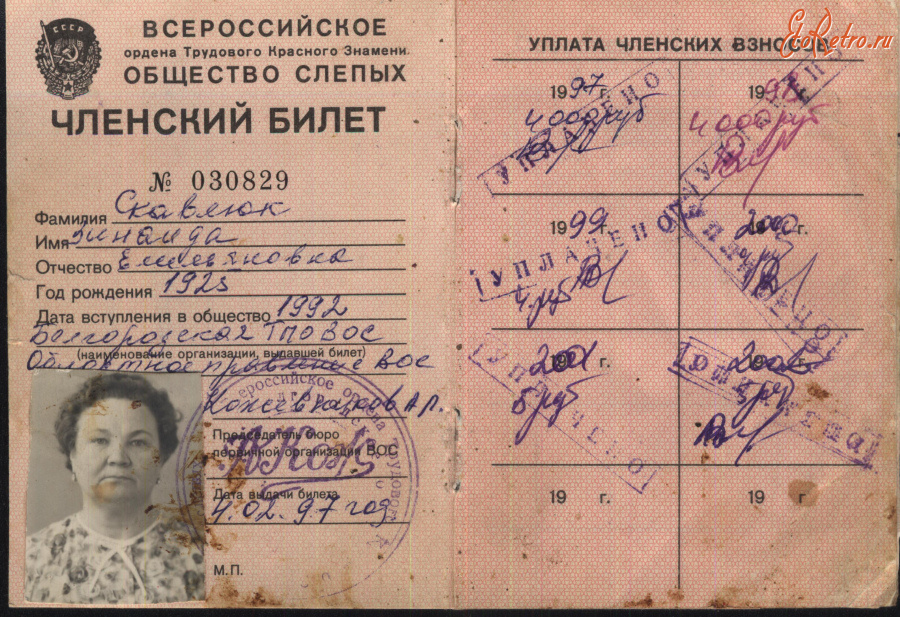 СССР
ВСЕРОССИЙСКОЕ
ордена Трудового Красного Знамени
ОБЩЕСТВО СЛЕПЫХ
ЧЛЕНСКИЙ БИЛЕТ
№ 030829
Фамилия Скавлюк
Имя Зинаида
Отчество Емельяновка
Год рождения 1925
Дата вступления в общество 1992
Белгородская ТПО ВОС
(наименование организации, выдавшей билет)
Областное правление ВОС
Кожевников А.П.
Председатель бюро
первичной организации ВОС
Дата выдачи билета
4.02.97 год
М.П.
УПЛАТА ЧЛЕНСКИХ ВЗНОСОВ
EtoRetro.ru
1997 г.
4000 руб
УПЛАЧЕНО
1998 г.
4000 руб
УПЛАЧЕНО
1999 г.
4 руб
УПЛАЧЕНО
2000
УПЛАЧЕНО
2001 г.
5 руб
УПЛАЧЕНО
200 г.
5 руб
УПЛАЧЕНО
19 г.
19 г.